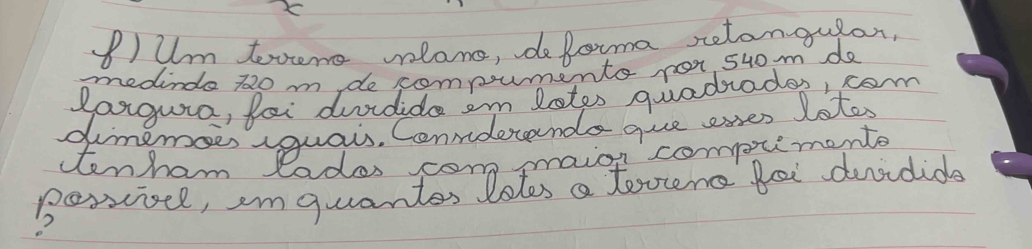 f) Um terreno plano, de forma retangular,
medindo 720 m de comprimento por 540 m de
largura, foi dividido em lotes quadrados, com
dimemões iguais. Considerando que esses lotes
tenham lados com maior comprimento
possível, em quantos lotes o terreno foi dividido
?